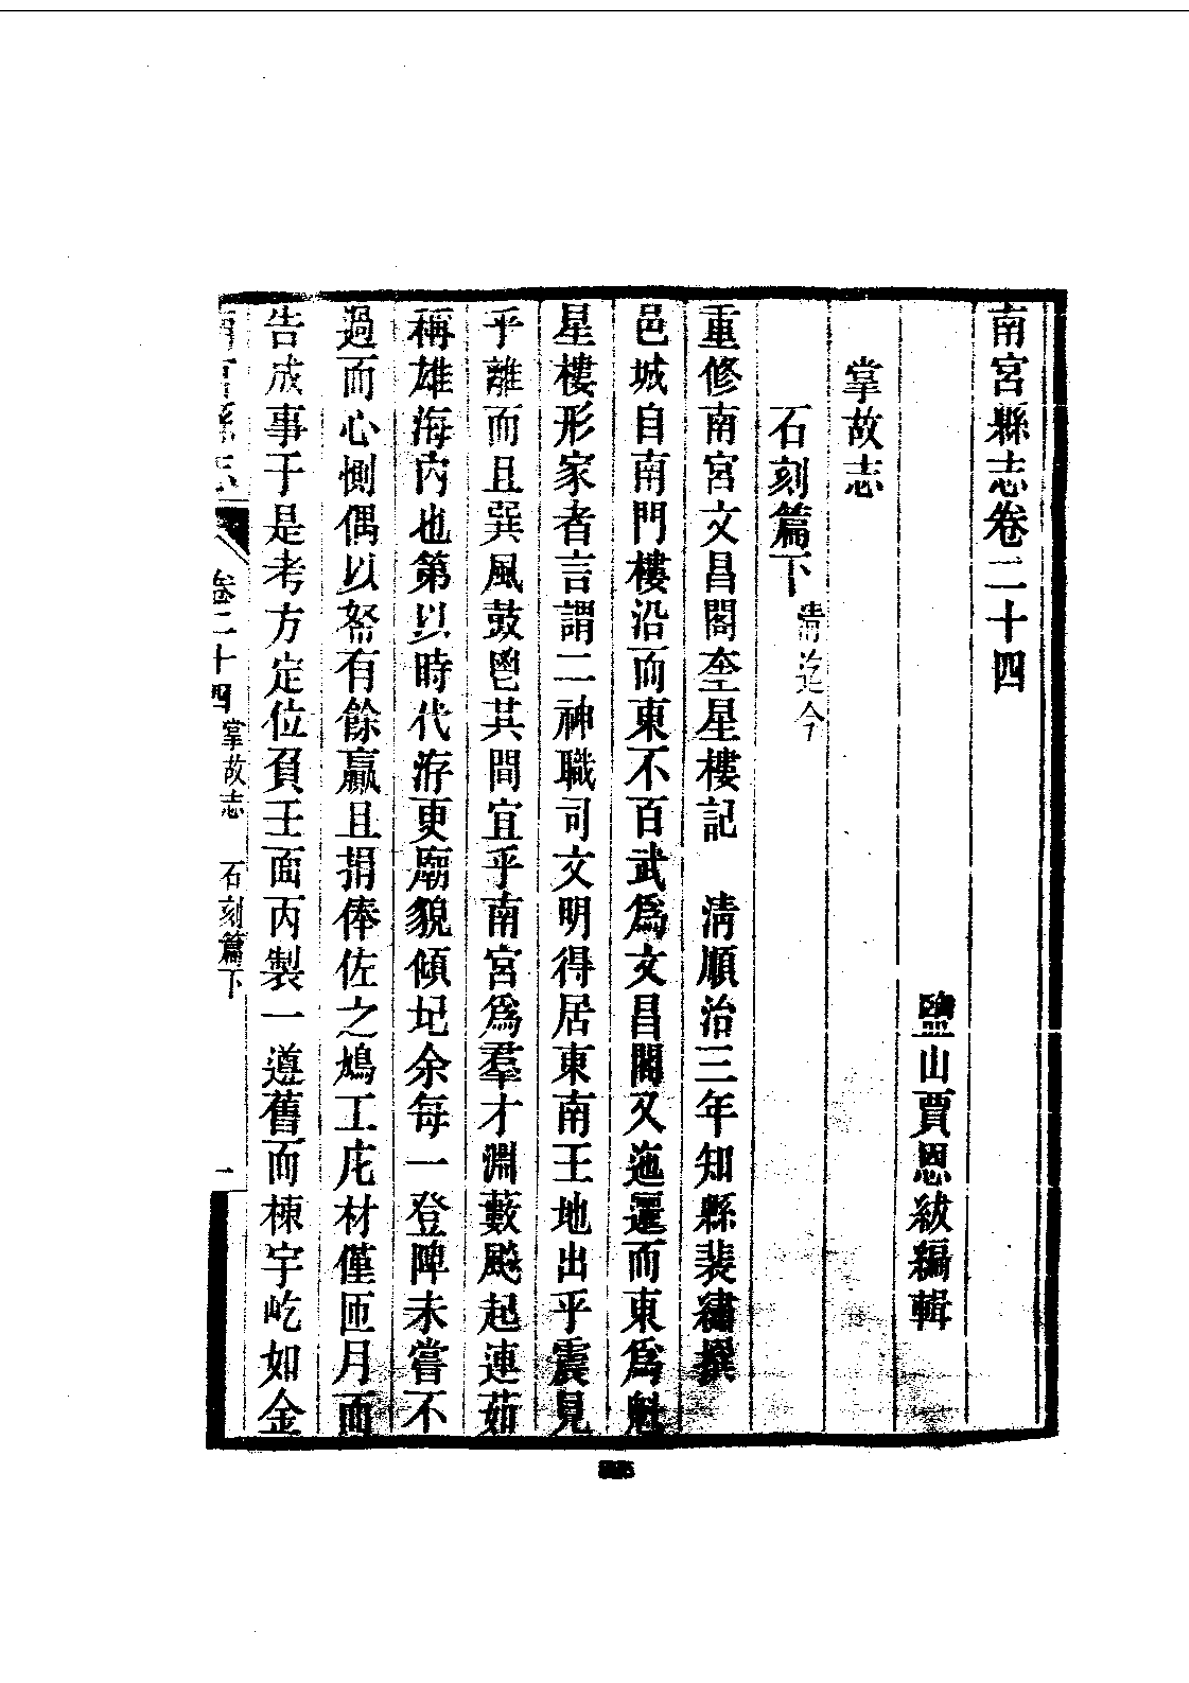 南宮縣志卷二十四
鹽山賈恩紱編輯
掌故志
石刻篇下清迄今
重修南宮文昌閣奎星樓記　清順治三年知縣裴繡撰
邑城自南門樓沿而東不百武爲文昌閣又迤邐而東爲魁
星樓形家者言謂二神職司文明得居東南王地出乎震見
乎離而且巽風鼓鬯其間宜乎南宮爲羣才淵藪颷起連茹
稱雄海內也第以時代洊更廟貌傾圮余每一登陴未嘗不
過而心惻偶以帑有餘羸且捐俸佐之鳩工庀材僅匝月而
告成事于是考方定位負壬面丙製一遵舊而棟宇屹如金
南宮縣志　卷二十四　掌故志　石刻篇下　一